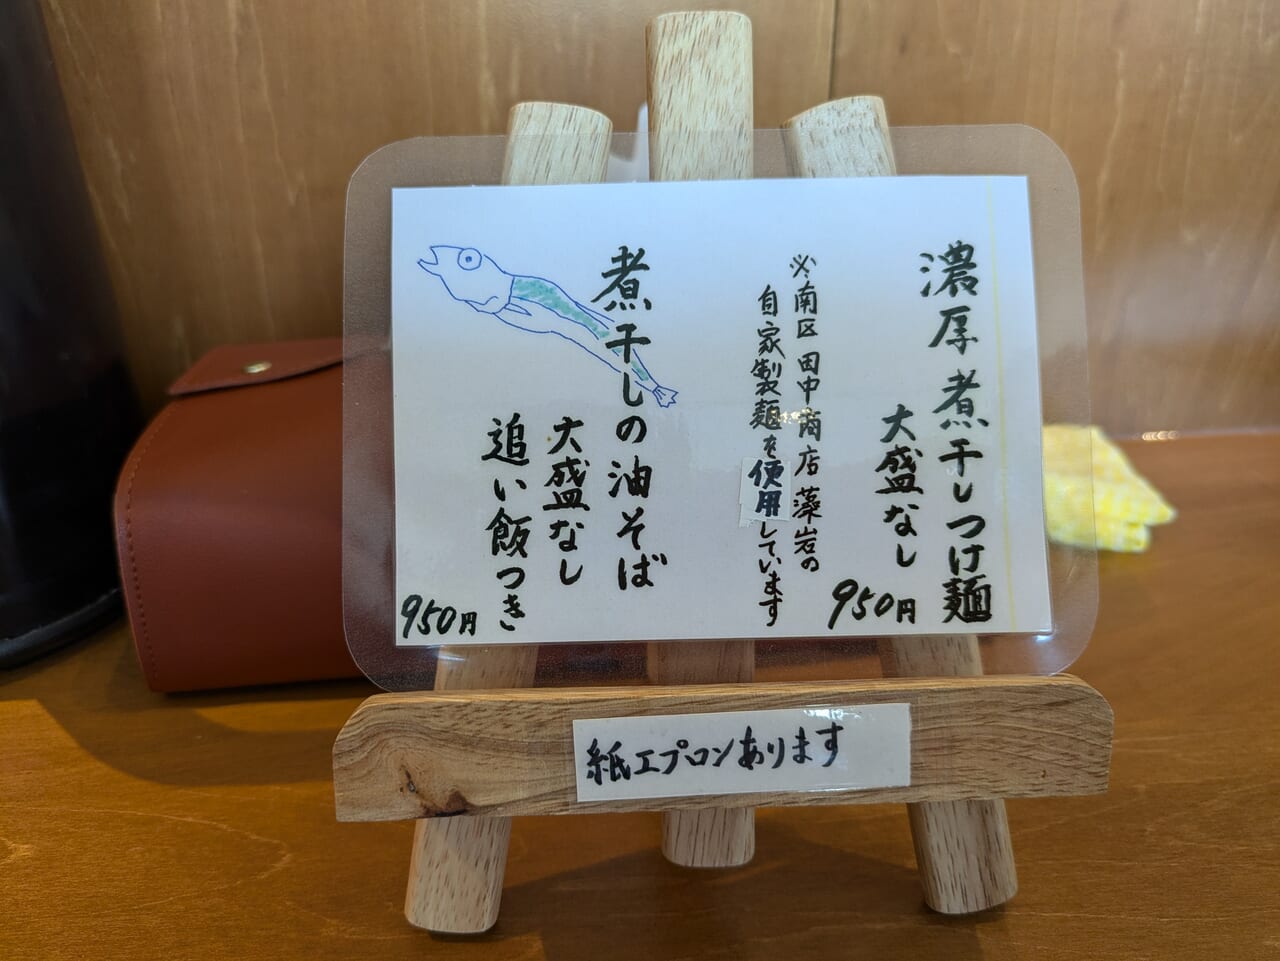 濃厚煮干しつけ麺
大盛なし
950円
※南区田中商店藻岩の
自家製麺を使用しています
煮干しの油そば
大盛なし
追い飯つき
950円
紙エプロンあります